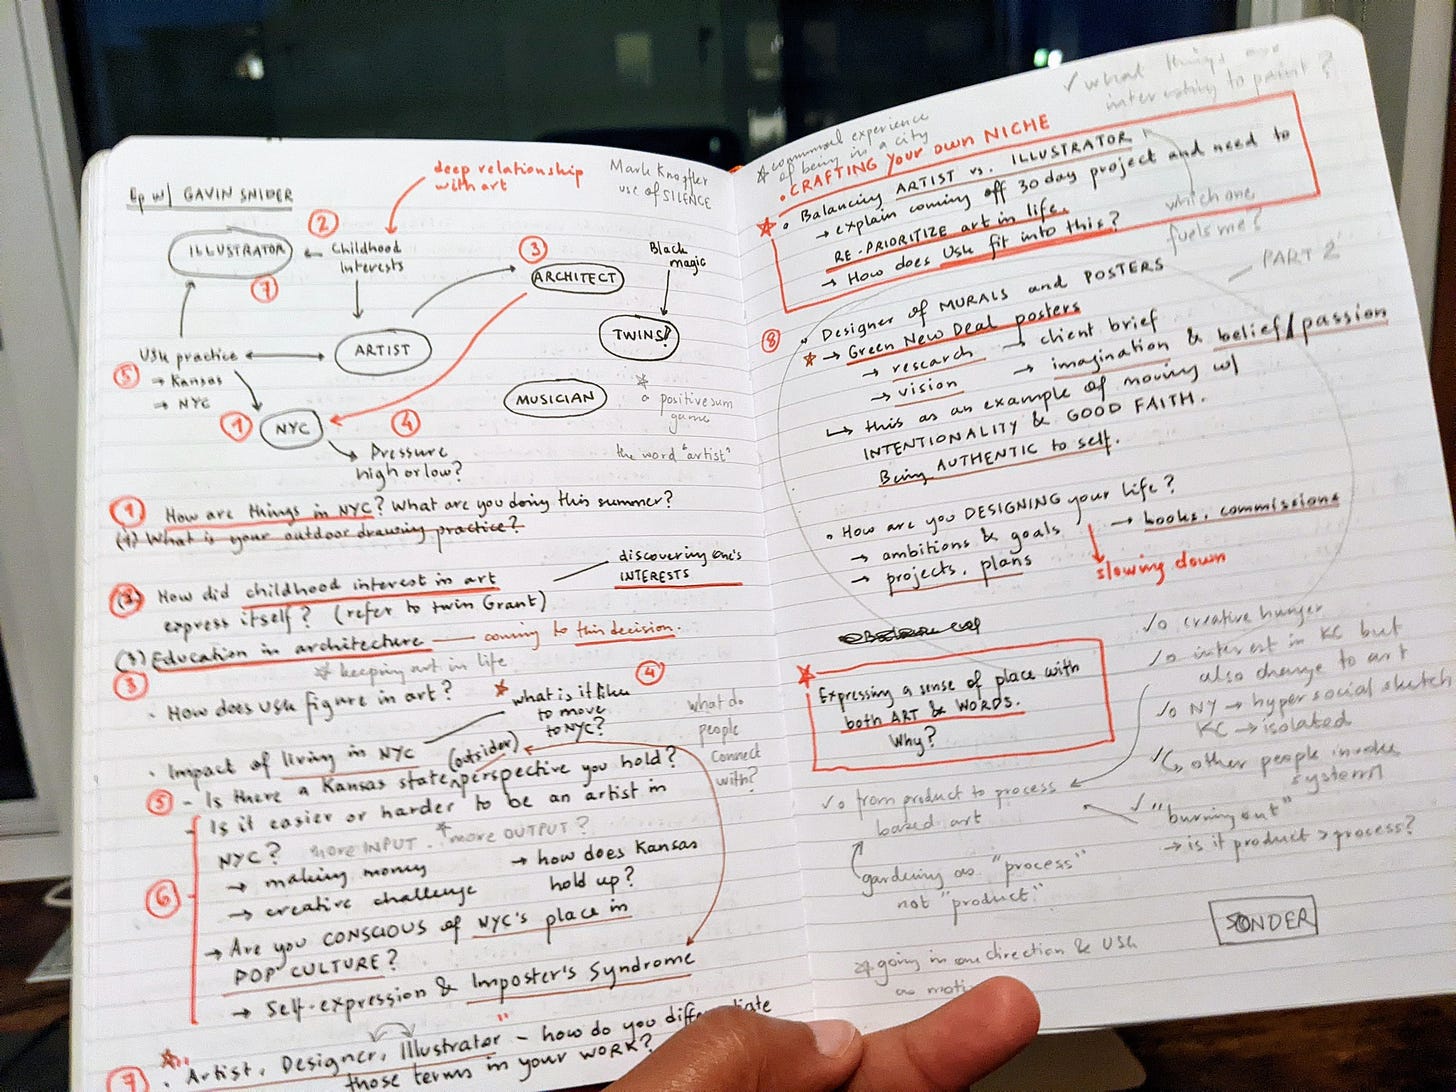 Ep w/ GAVIN SNIDER
deep relationship
with art
Mark Knopfler
use of SILENCE
2
ILLUSTRATOR
Childhood
Interests
7
3
ARCHITECT
Black
magic
TWINS!
ARTIST
USk practice
5
→ Kansas
→ NYC
MUSICIAN
a positive sum
game
1
NYC
4
Pressure
high or low?
the word "artist"
1 How are things in NYC? What are you doing this summer?
(1) What is your outdoor drawing practice?
discovering one's
INTERESTS
(2) How did childhood interest in art
express itself? (refer to twin Grant)
(3) Education in architecture — coming to this decision.
* keeping art in life
3
4
· How does USk figure in art?
* what is it like
to move
to NYC?
what do
people
connect
with?
· Impact of living in NYC
(outsider)
5 - Is there a Kansas state perspective you hold?
- Is it easier or harder to be an artist in
NYC? more INPUT. * more OUTPUT?
6
→ making money
→ creative challenge
→ how does Kansas
hold up?
→ Are you CONSCIOUS of NYC's place in
POP CULTURE?
→ Self-expression & Imposter's Syndrome
7 · Artist, Designer, Illustrator - how do you
those terms in your WORK?
✓ what things are
interesting to paint?
* communal experience
of being in a city
· CRAFTING your own NICHE
· Balancing ARTIST vs. ILLUSTRATOR
→ explain coming off 30 day project and need to
RE-PRIORITIZE art in life.
→ How does USk fit into this?
which one
fuels me?
PART 2
8
· Designer of MURALS and POSTERS
* → Green New Deal posters
→ research → client brief
→ vision → imagination & belief/passion
↳ this as an example of moving w/
INTENTIONALITY & GOOD FAITH.
Being AUTHENTIC to self.
· How are you DESIGNING your life?
→ ambitions & goals
→ projects, plans
→ books, commissions
slowing down
Expressing a sense of place with
both ART & WORDS.
Why?
✓o creative hunger
✓o interest in KC but
also change to art
✓o NY → hyper social sketch
KC → isolated
↳ other people invoke
system 1
✓o from product to process
based art
✓ "burning out"
→ is it product > process?
gardening as "process"
not "product".
SONDER
* going in one direction & USk
as